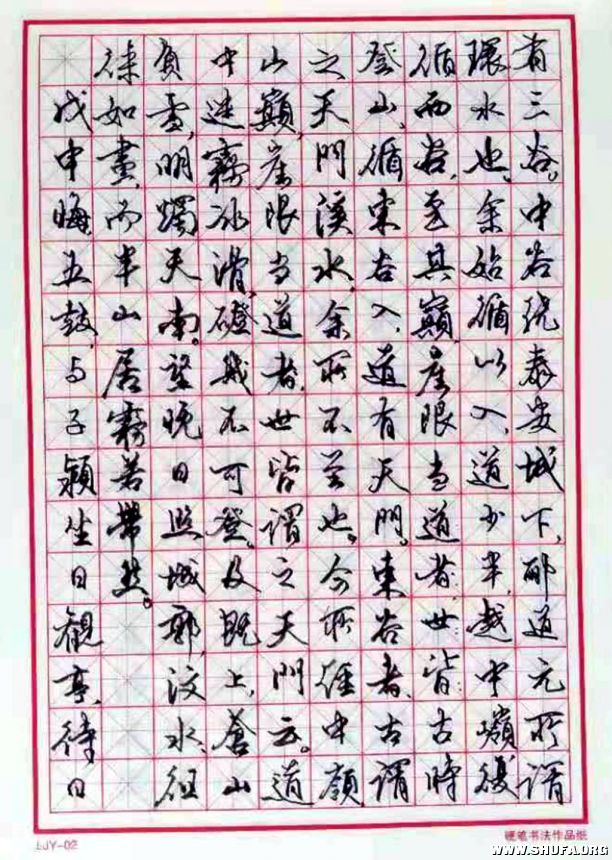 有三谷。中谷绕泰安城下,郦道元所谓
環水也。余始循以入,道少半,越中嶺,復
循西谷,至其巔,崖限當道者,世皆古時
登山,循東谷入,道有天門。東谷者,古謂
之天門溪水,余所不至也。今所經中嶺
山巔,崖限當道者,世皆謂之天門云。道
中迷霧冰滑,磴幾不可登。及既上,蒼山
負雪,明燭天南。望晚日照城郭,汶水、徂
徠如畫,而半山居霧若帶然。
戊申晦,五鼓,与子潁坐日觀亭,待日
LJY-02
硬笔书法作品纸
WWW.SHUFA.ORG